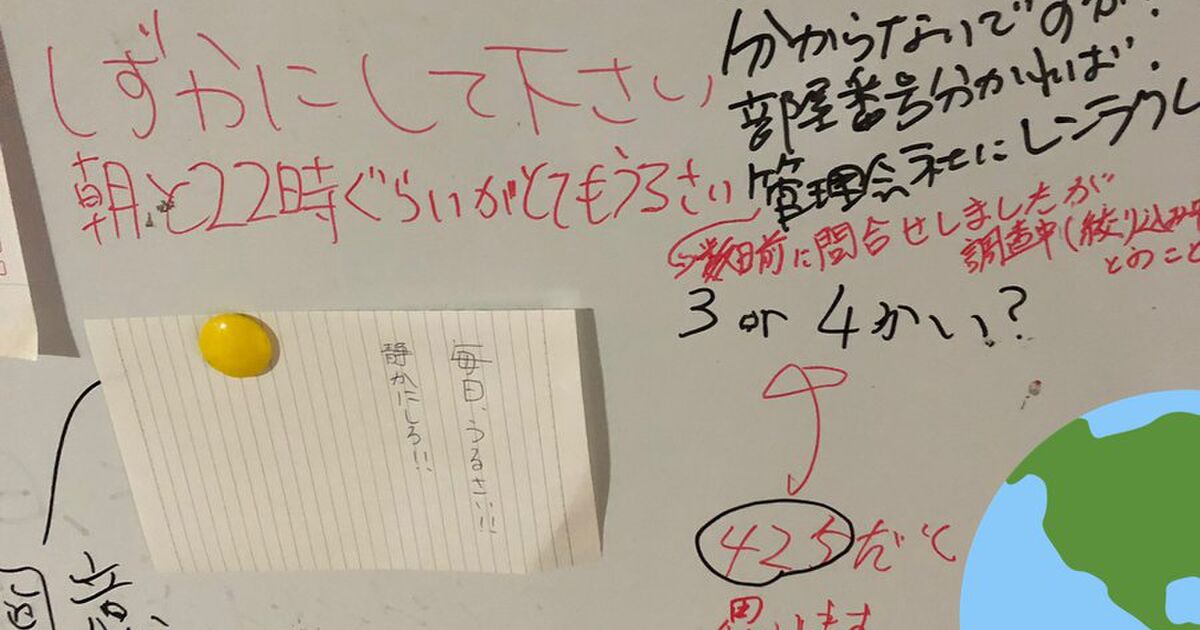 しずかにして下さい
朝と22時ぐらいがとてもうるさい
分からないですのが?
部屋番号分かれば.
管理会社にレンラクし
数日前に問合せしましたが
調査中(絞り込み中
とのこと
3 or 4かい?
毎日、うるさい!!
静かにしろ!!
425だと
思います
音